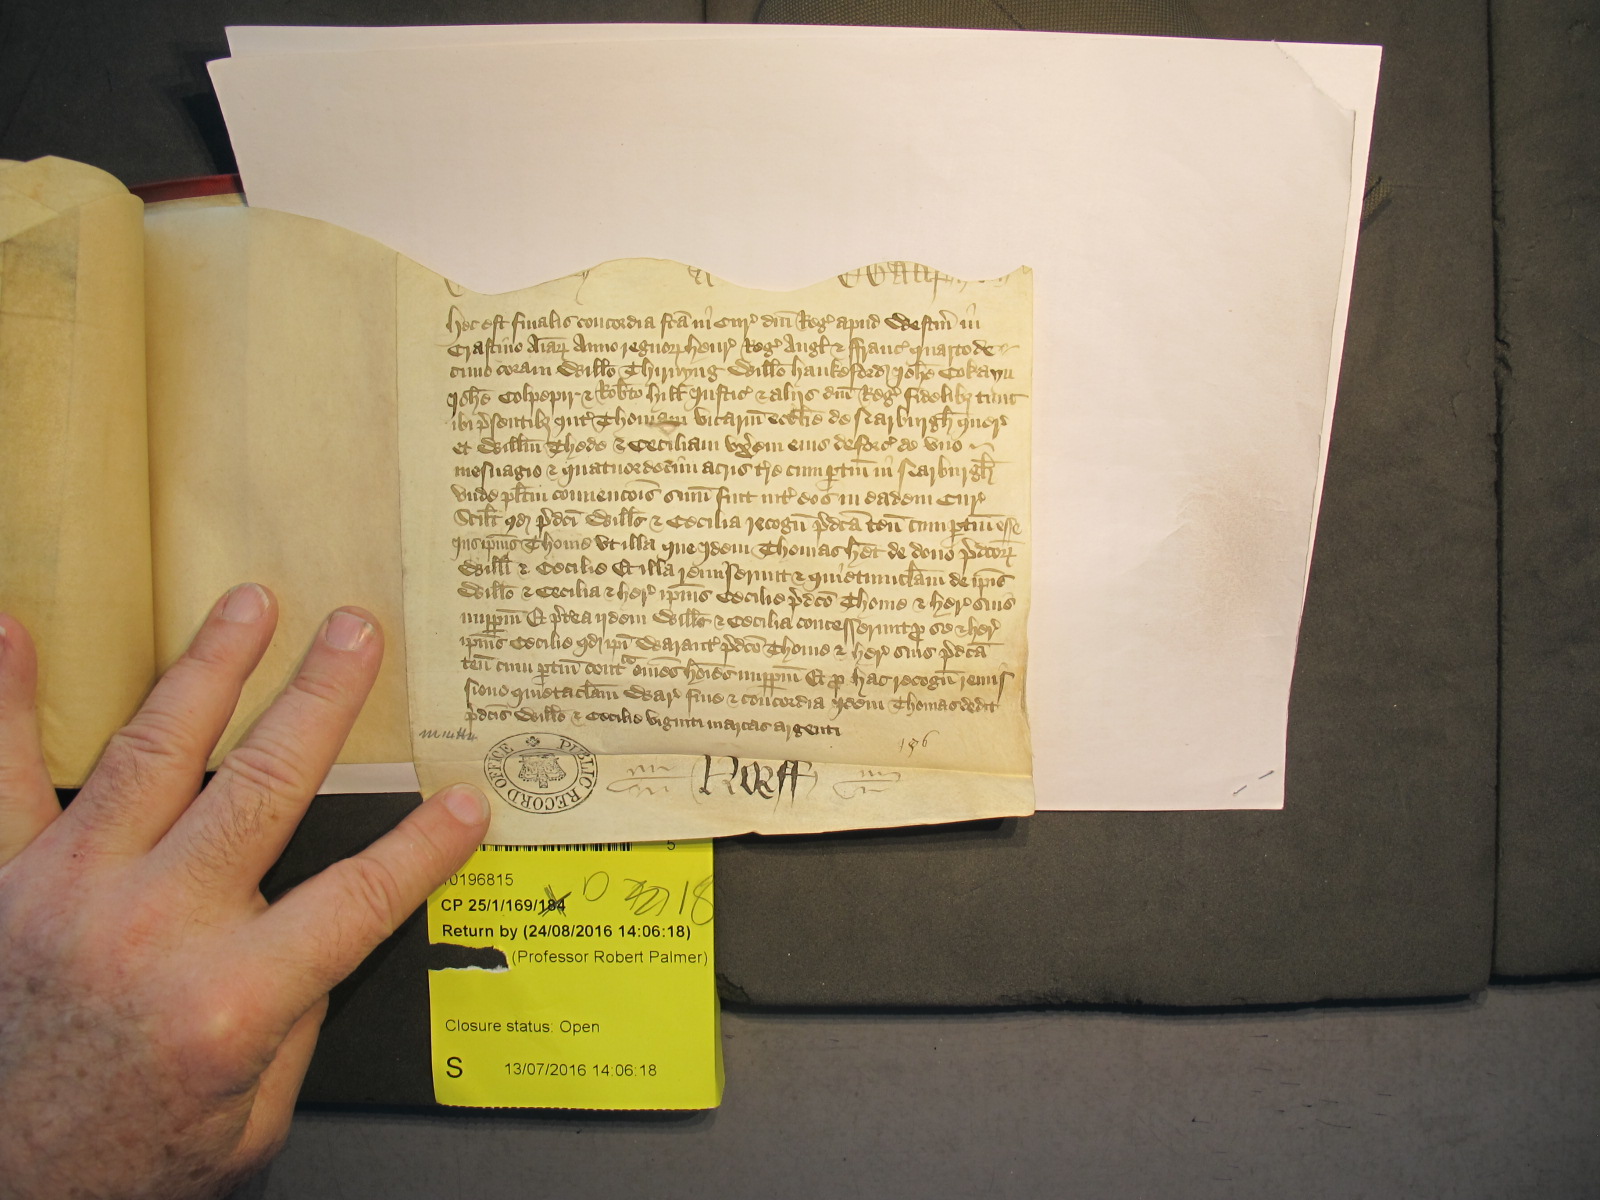 Hec est finalis concordia fc̄a in Cur' dn̄i Reg' apud Westm̄ in
Crastino Aīar̄ Anno regnor̄ Henr' Reg' Angl' & ffranc' quarto de
cimo coram Will̄o Thirnyng Will̄o Hankeford Joh̄e Cokayn
Joh̄e Colpepir & Rob̄to Hill Justic' & aliis dn̄i Reg' fidelibȝ tunc
ibi p̄sentibȝ Int' Thomam vicariū eccl̄ie de Scarburgh quer'
et Will̄m Thede & Ceciliam vx̄em eius deforc' de vno
mesuagio & quatuordecim acris t̄re cum p̄tin̄ in Scarburgh
vnde pl̄itm conuenc̄ois sum̄ fuit int' eos in eadem Cur'
Scil̄t qd p̄dc̄i Will̄s & Cecilia recogn̄ p̄dc̄a ten̄ cum p̄tin̄ esse
Jus ip̄ius Thome vt illa que idem Thomas h̄et de dono p̄dc̄or̄
Will̄i & Cecilie Et illa remiserunt & quietumclam̄ de ip̄is
Will̄o & Cecilia & her' ip̄ius Cecilie p̄dc̄o Thome & her' suis
imp̄p̄m Et p̄t̄ea ijdem Will̄s & Cecilia concesserunt p̄ se & her'
ip̄ius Cecilie qd ip̄i Warant' p̄dc̄o Thome & her' suis p̄dc̄a
ten̄ cum p̄tin̄ cont̄a om̄es ho̅ies imp̄p̄m Et p̄ hac recogn̄ remis
sione quietaclam̄ War' fine & concordia idem Thomas dedit
p̄dc̄is Will̄o & Cecilie viginti marcas argenti
196
PUBLIC RECORD OFFICE
Norff
5
10196815
CP 25/1/169/184
18
Return by (24/08/2016 14:06:18)
(Professor Robert Palmer)
Closure status: Open
S 13/07/2016 14:06:18